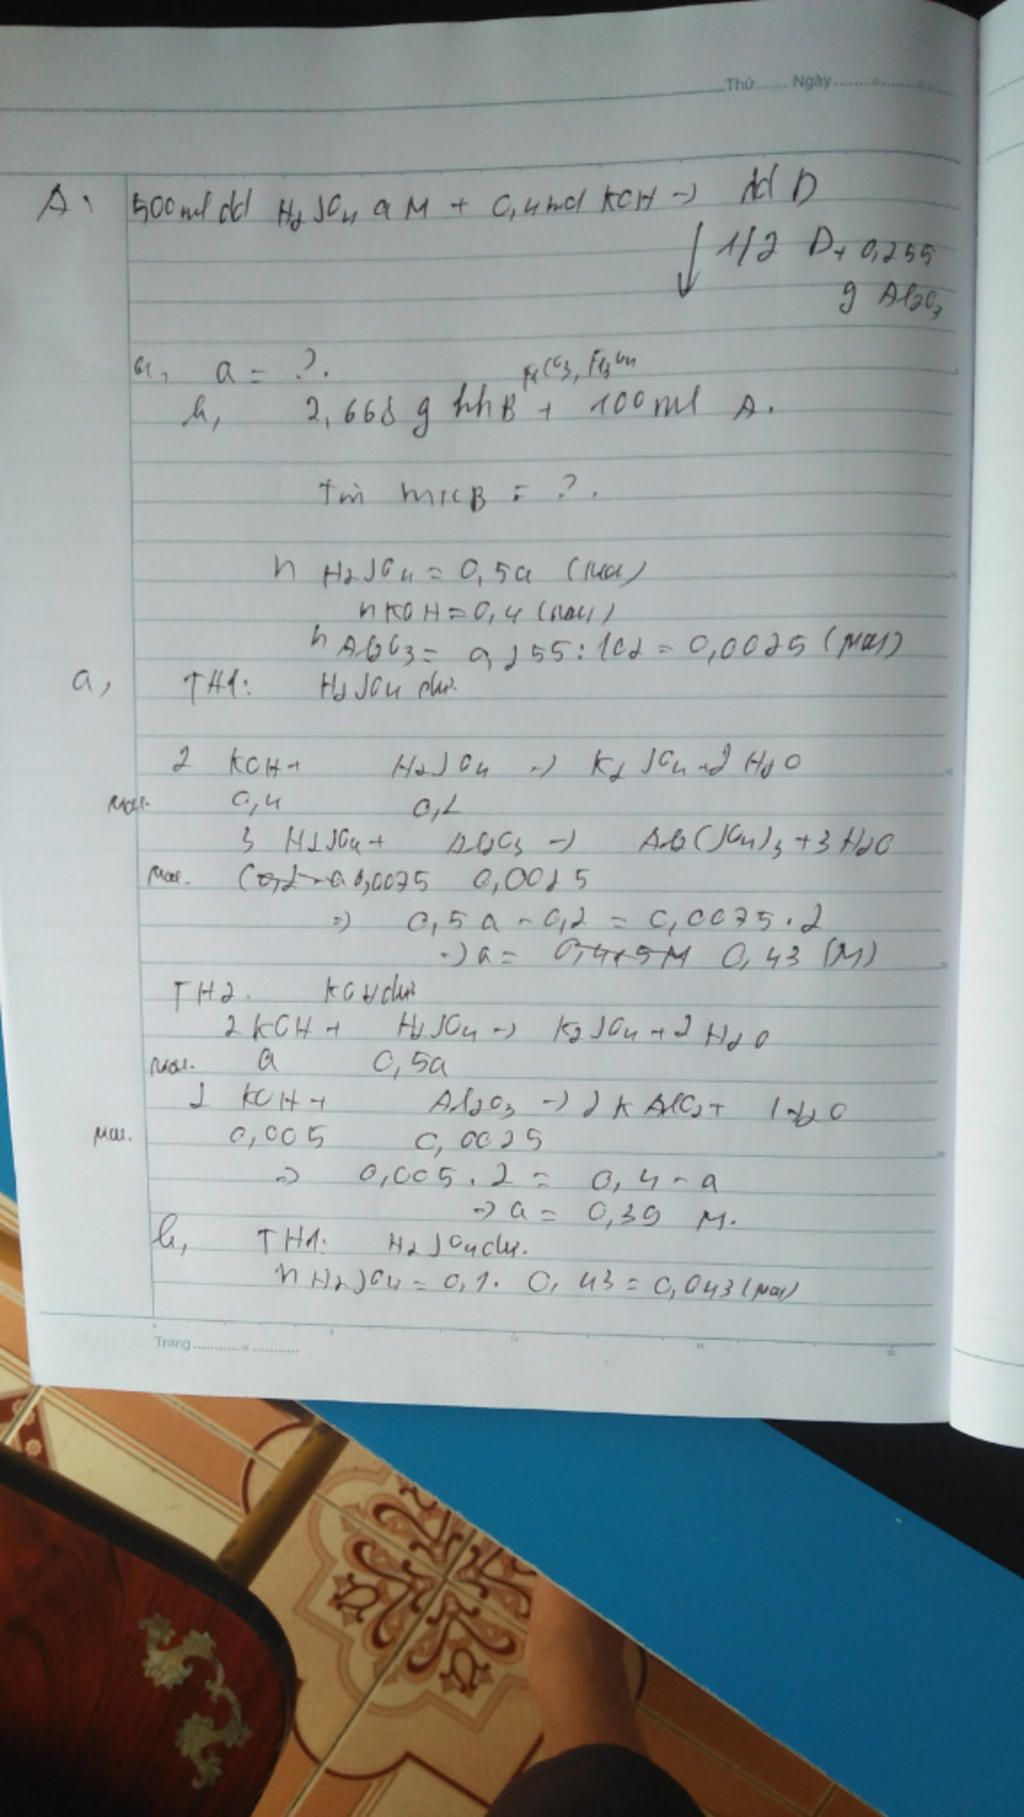 Thứ....... Ngày.......
A: 500ml dd H2SO4 a M + 0,4 mol KOH → dd D
↓ 1/2 D + 0,255
g Al2O3
a, a = ?.
FeCO3, Fe3O4
b, 2,668 g hhB + 100ml A.
Tìm mKCB = ?.
n H2SO4 = 0,5a (mol)
n KOH = 0,4 (mol)
n Al2O3 = 0,255 : 102 = 0,0025 (mol)
a, TH1: H2SO4 dư.
2 KOH + H2SO4 → K2SO4 + 2 H2O
mol. 0,4 0,2
3 H2SO4 + Al2O3 → Al2(SO4)3 + 3 H2O
mol. 0,0075 0,0025
⇒ 0,5a - 0,2 = 0,0075 . 2
→ a = 0,415M 0,43 (M)
TH2. KOH dư
2 KOH + H2SO4 → K2SO4 + 2 H2O
mol. a 0,5a
2 KOH + Al2O3 → 2 KAlO2 + H2O
mol. 0,005 0,0025
⇒ 0,005 . 2 = 0,4 - a
→ a = 0,39 M.
b, TH1: H2SO4 dư.
n H2SO4 = 0,1 . 0,43 = 0,043 (mol)
Trang